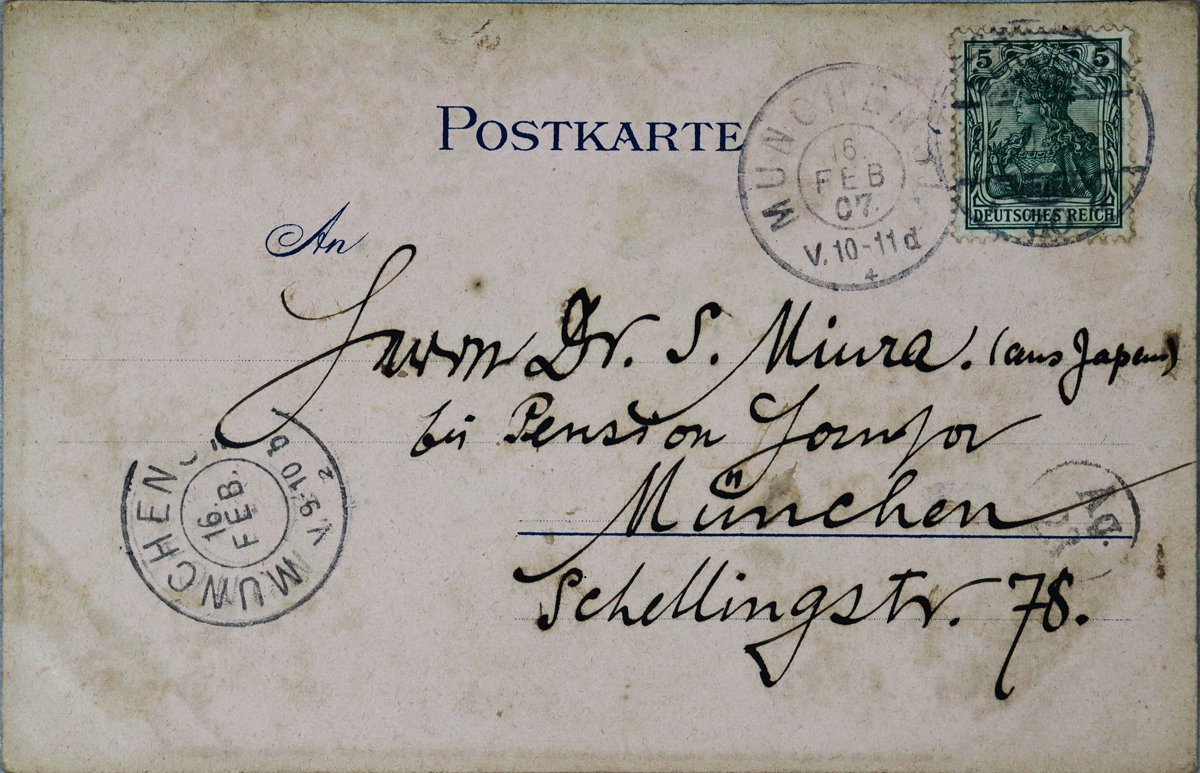 POSTKARTE
MÜNCHEN
16
FEB
07.
V.10-11 d
5 5
DEUTSCHES REICH
An
Herrn Dr. S. Miura. (aus Japan)
bei Pension
München
Schellingstr. 78.
MÜNCHEN
16.
FEB.
V.9-10 b
2
MÜNCHEN
Ag.